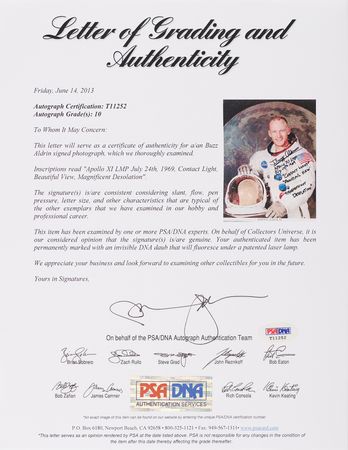 Letter of Grading and
Authenticity
Friday, June 14, 2013
Autograph Certification: T11252
Autograph Grade(s): 10
To Whom It May Concern:
This letter will serve as a certificate of authenticity for a/an Buzz
Aldrin signed photograph, which we thoroughly examined.
Inscriptions read "Apollo XI LMP July 24th, 1969, Contact Light,
Beautiful View, Magnificent Desolation".
The signature(s) is/are consistent considering slant, flow, pen
pressure, letter size, and other characteristics that are typical of
the other exemplars that we have examined in our hobby and
professional career.
This item has been examined by one or more PSA/DNA experts. On behalf of Collectors Universe, it is
our considered opinion that the signature(s) is/are genuine. Your authenticated item has been
permanently marked with an invisible DNA daub that will fluoresce under a patented laser lamp.
We appreciate your business and look forward to examining other collectibles for you in the future.
Yours in Signatures,
PSA/DNA
T11252
On behalf of the PSA/DNA Autograph Authentication Team
Zach Rullo
Steve Grad
John Reznikoff
Bob Eaton
Bob Zafian
James Camner
PSA DNA
AUTHENTICATION SERVICES
Rich Consola
Kevin Keating
*An exact image of this item can be found on our website by entering the unique PSA/DNA certification number
P.O. Box 6180, Newport Beach, CA 92658 • 800-325-1121 • Fax: 949-567-1131• www.psacard.com
*This letter serves as an opinion rendered by PSA at the date listed above. PSA is not responsible for any changes in the condition of
this item after thereby affecting the grade thereof.